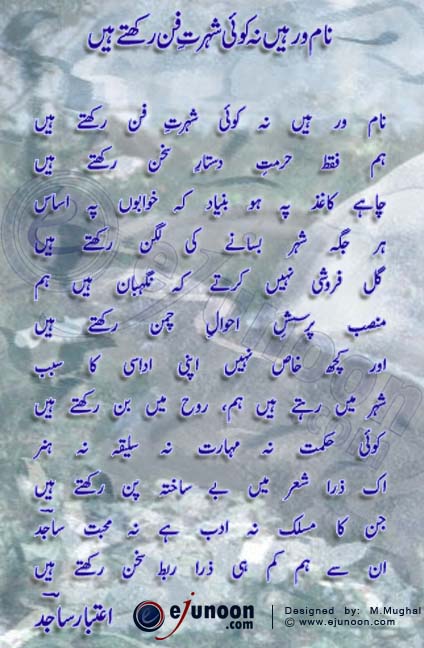 نام ور ہیں نہ کوئی شہرتِ فن رکھتے ہیں
نام ور ہیں نہ کوئی شہرتِ فن رکھتے ہیں
ہم فقط حرمتِ دستارِ سخن رکھتے ہیں
چاہے کاغذ پہ ہو بنیاد کہ خوابوں پہ اساس
ہر جگہ شہر بسانے کی لگن رکھتے ہیں
گل فروشی نہیں کرتے کہ نگہبان ہیں ہم
منصب پرسشِ احوالِ چمن رکھتے ہیں
اور کچھ خاص نہیں اپنی اداسی کا سبب
شہر میں رہتے ہیں ہم، روح میں بن رکھتے ہیں
کوئی حکمت نہ مہارت نہ سلیقہ نہ ہنر
اک ذرا شعر میں بے ساختہ پن رکھتے ہیں
جن کا مسلک نہ ادب ہے نہ محبت ساجدؔ
ان سے ہم کم ہی ذرا ربط سخن رکھتے ہیں
اعتبار ساجدؔ
ejunoon.com
Designed by: M.Mughal
© www.ejunoon.com
ejunoon.com